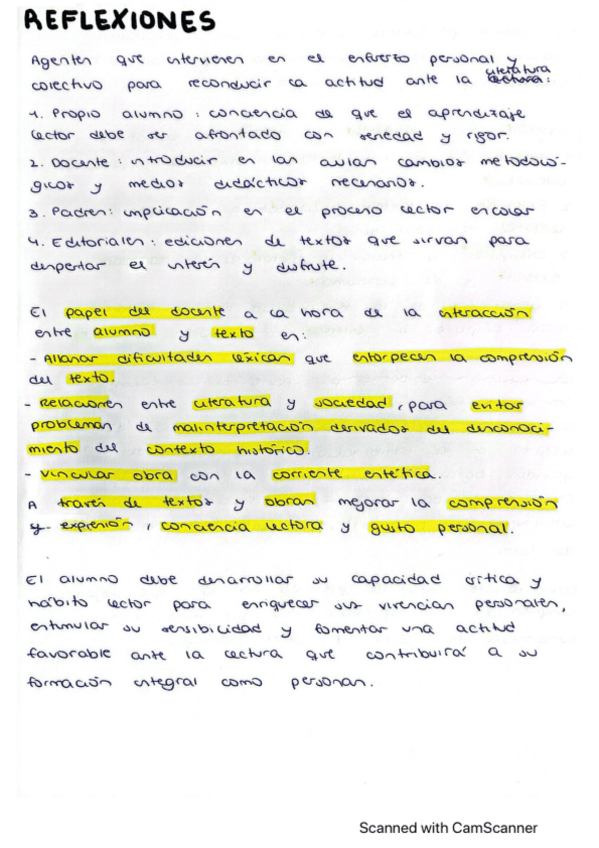 REFLEXIONES
Agentes que intervienen en el esfuerzo personal y
colectivo para reconducir la actitud ante la literatura:
1. Propio alumno: conciencia de que el aprendizaje
lector debe ser afrontado con seriedad y rigor.
2. Docente: introducir en las aulas cambios metodoló-
gicos y medios didácticos necesarios.
3. Padres: implicación en el proceso lector escolar
4. Editoriales: ediciones de textos que sirvan para
despertar el interés y disfrute.
El papel del docente a la hora de la interacción
entre alumno y texto es:
- Allanar dificultades léxicas que entorpecen la comprensión
del texto.
- Relaciones entre literatura y sociedad, para evitar
problemas de malinterpretación derivados del desconoci-
miento del contexto histórico.
- vincular obra con la corriente estética.
A través de textos y obras mejorar la comprensión
y expresión, conciencia lectora y gusto personal.
El alumno debe desarrollar su capacidad crítica y
hábito lector para enriquecer sus vivencias personales,
estimular su sensibilidad y fomentar una actitud
favorable ante la lectura que contribuirá a su
formación integral como personas.
Scanned with CamScanner